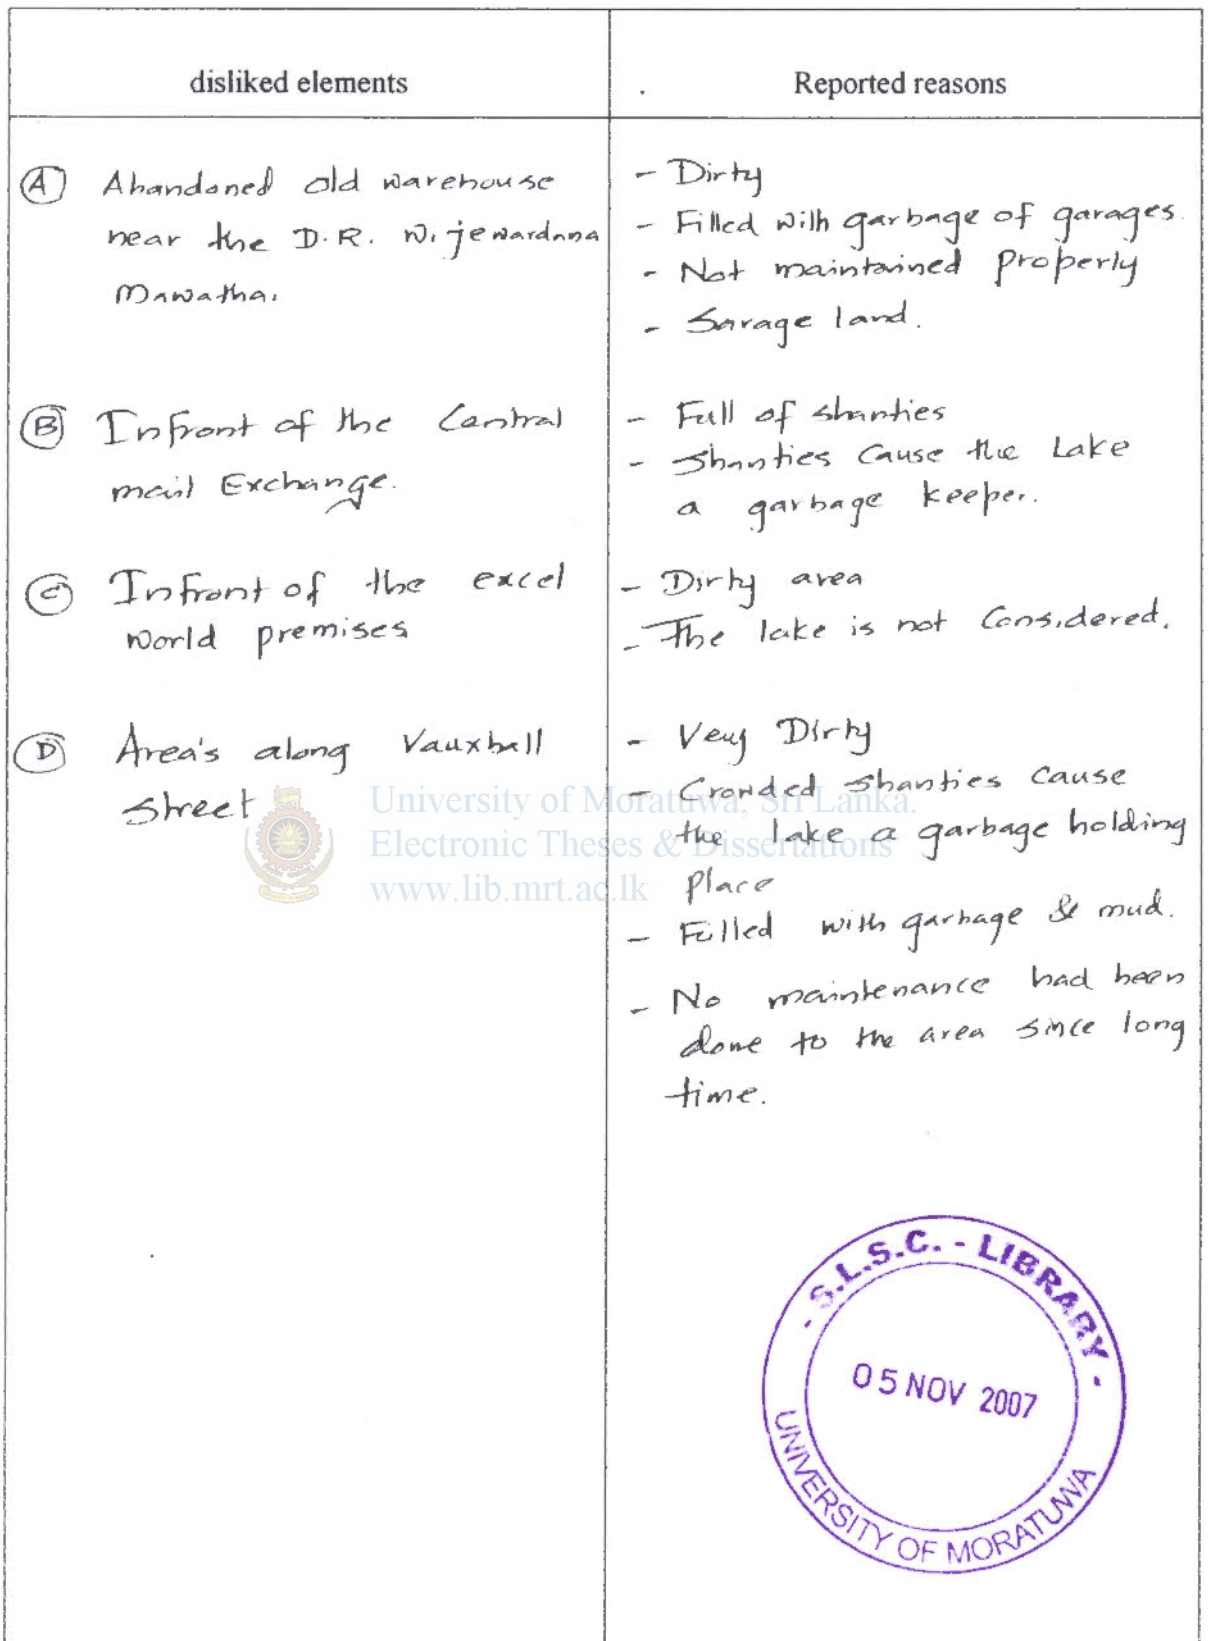 disliked elements
Reported reasons
(A) Abandoned old warehouse
near the D.R. Wijewardana
Mawatha.
- Dirty
- Filled with garbage of garages.
- Not maintained properly
- Savage land.
(B) Infront of the Central
mail Exchange.
- Full of shanties
- Shanties cause the Lake
a garbage keeper.
(C) Infront of the excel
world premises
- Dirty area
- The lake is not Considered.
(D) Area's along Vauxhall
Street
- Very Dirty
- Crowded shanties cause
the lake a garbage holding
place
- Filled with garbage & mud.
- No maintenance had been
done to the area since long
time.
University of Moratuwa, Sri Lanka.
Electronic Theses & Dissertations
www.lib.mrt.ac.lk
- S.L.S.C. - LIBRARY -
05 NOV 2007
UNIVERSITY OF MORATUWA